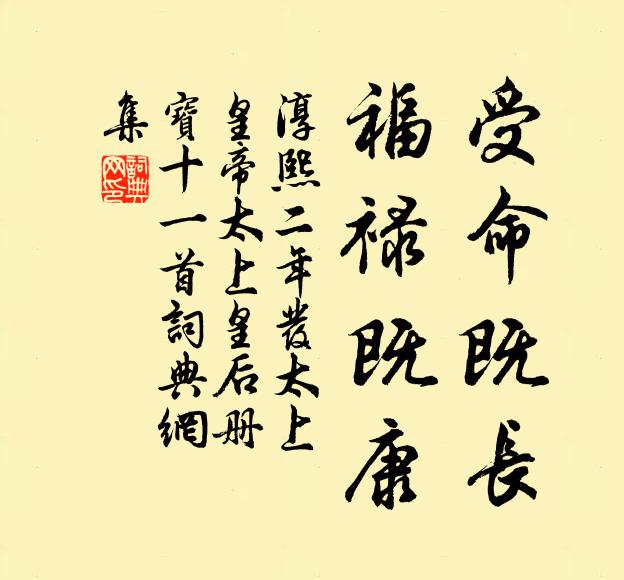 受命既長
福禄既康
淳熙二年發太上
皇帝太上皇后册
寶十一首詞典網
集
詞典網印